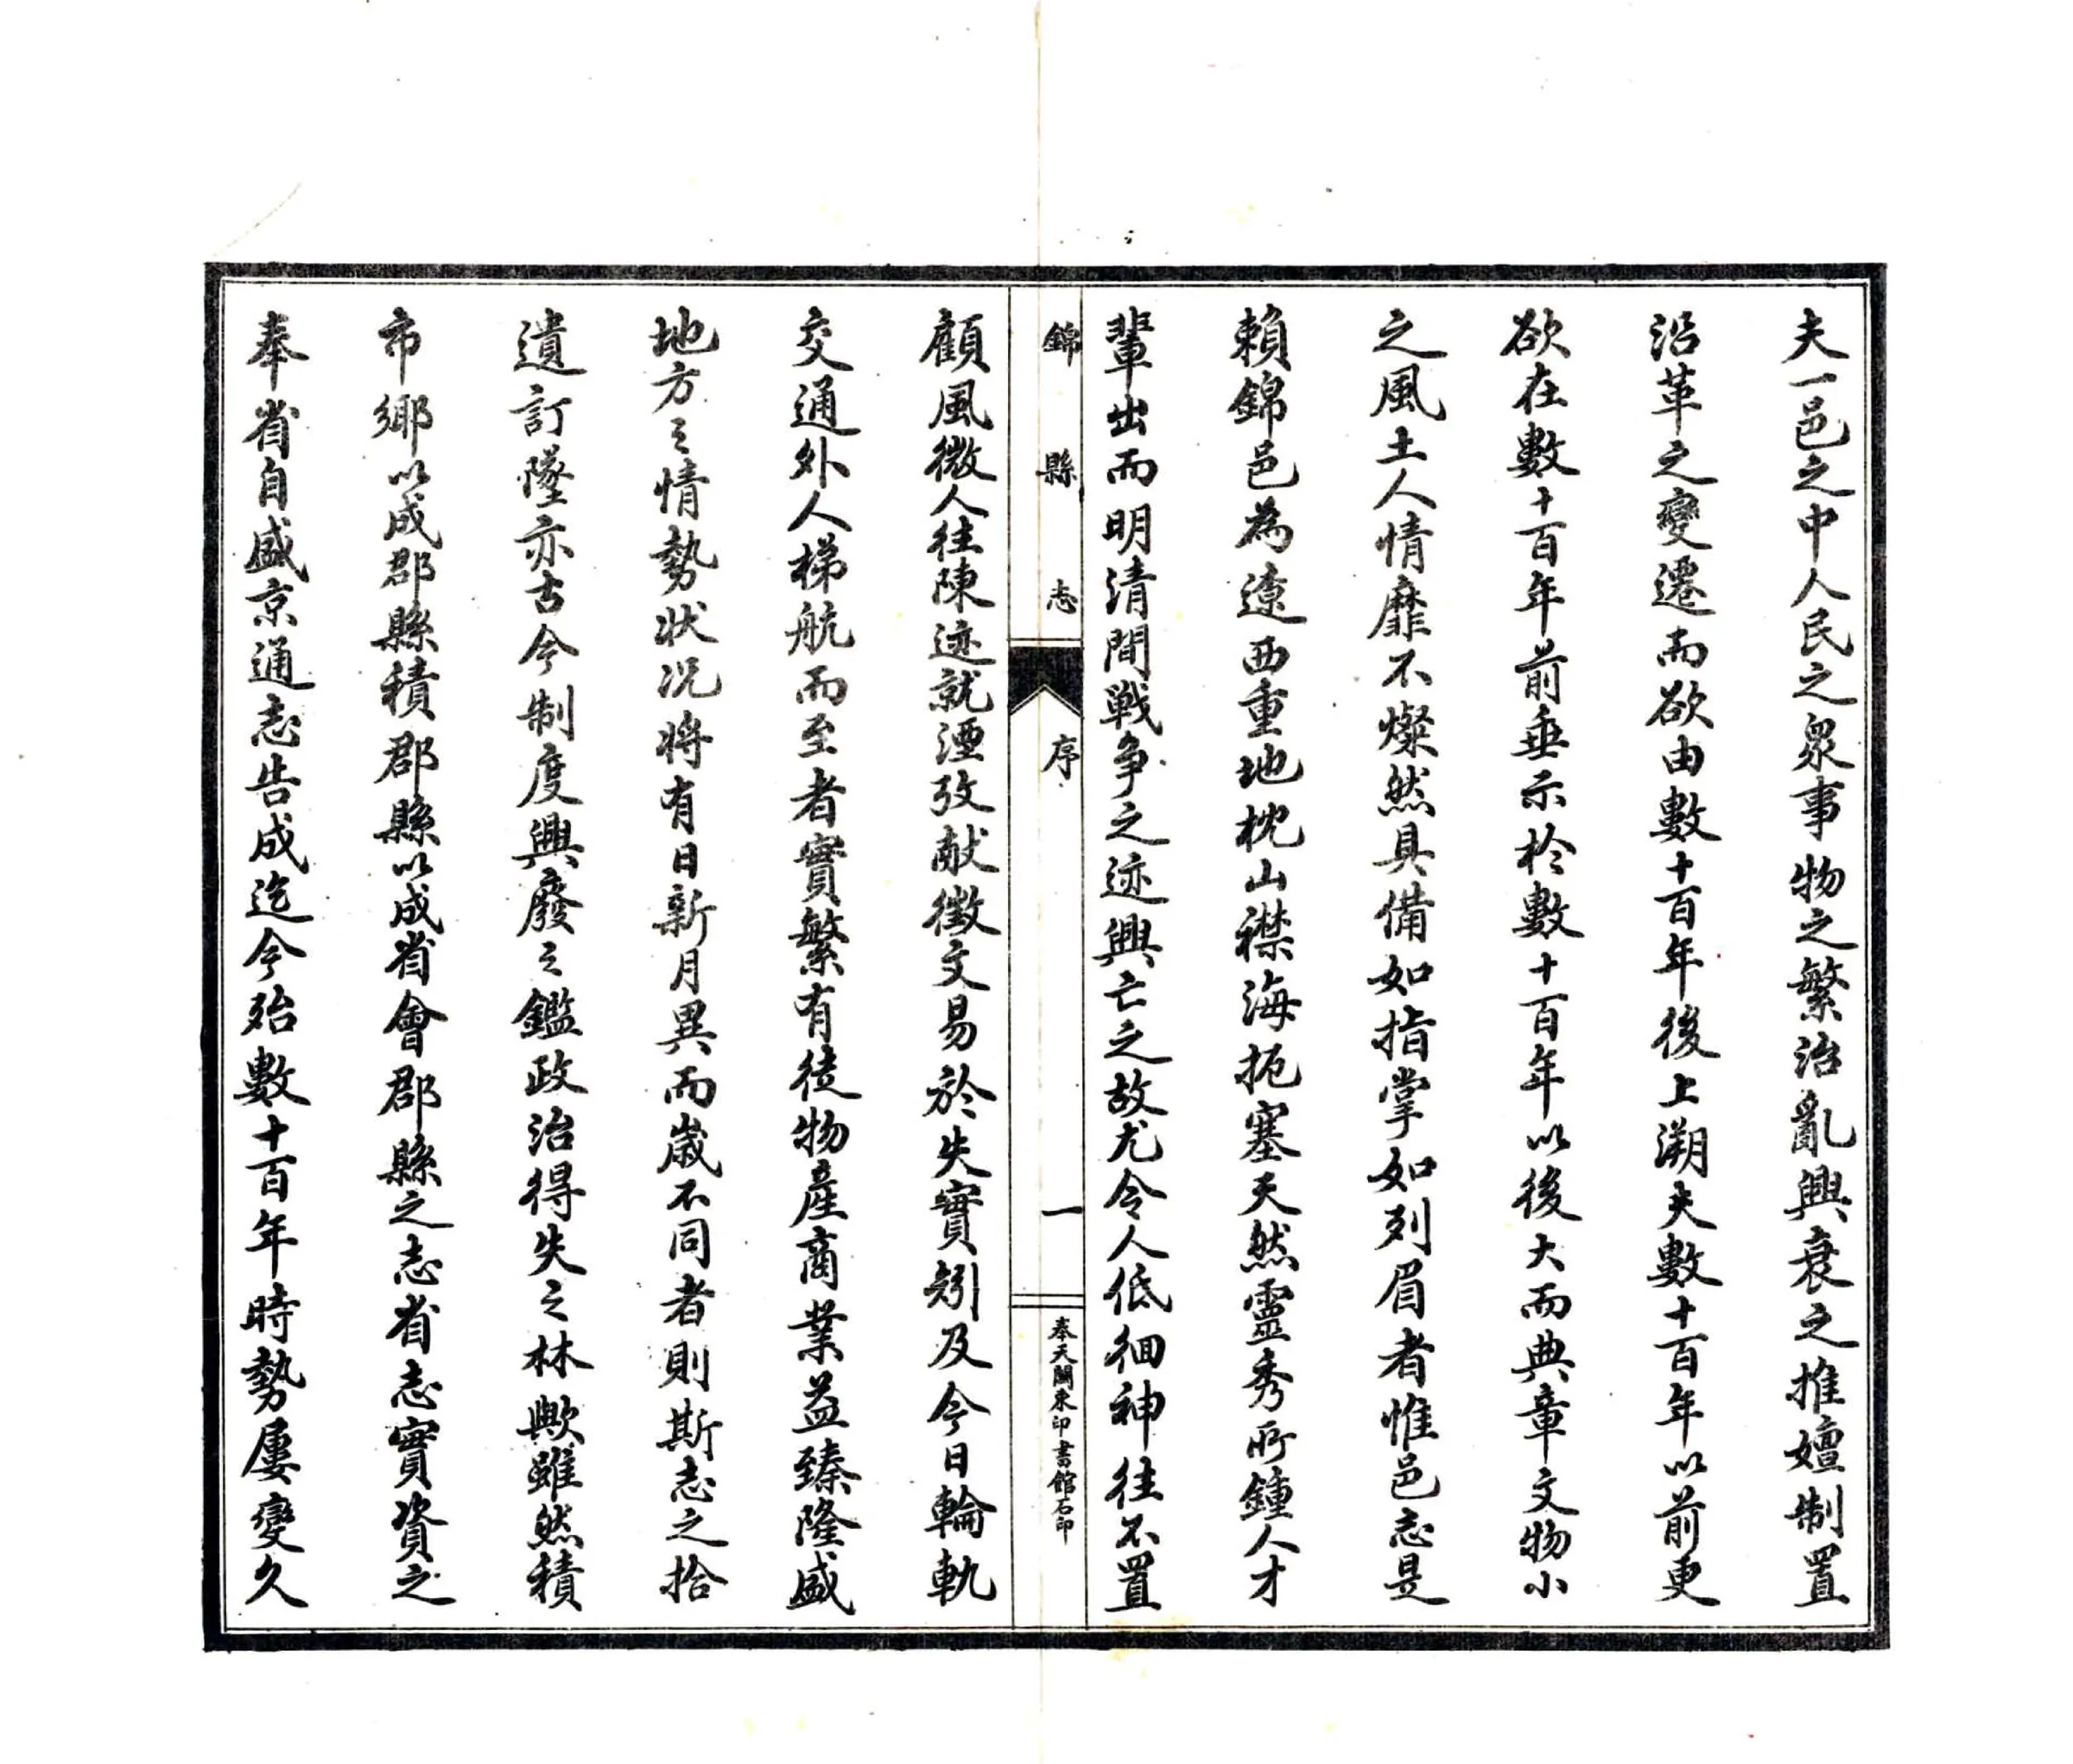 夫一邑之中人民之眾事物之繁治亂興衰之推嬗制置
沿革之變遷而欲由數十百年後上溯夫數十百年以前更
欲在數十百年前垂示於數十百年以後大而典章文物小
之風土人情靡不燦然具備如指掌如列眉者惟邑志是
賴錦邑為遼西重地枕山襟海扼塞天然靈秀所鍾人才
輩出而明清間戰爭之迹興亡之故尤令人低徊神往不置
錦縣志
序
一
奉天關東印書館石印
顧風微人往陳迹就湮攷獻徵文易於失實矧及今日輪軌
交通外人梯航而至者實繁有徒物產商業益臻隆盛
地方之情勢狀况將有日新月異而歲不同者則斯志之拾
遺訂墜亦古今制度興廢之鑑政治得失之林歟雖然積
市鄉以成郡縣積郡縣以成省會郡縣之志省志實資之
奉省自盛京通志告成迄今殆數十百年時勢屢變久